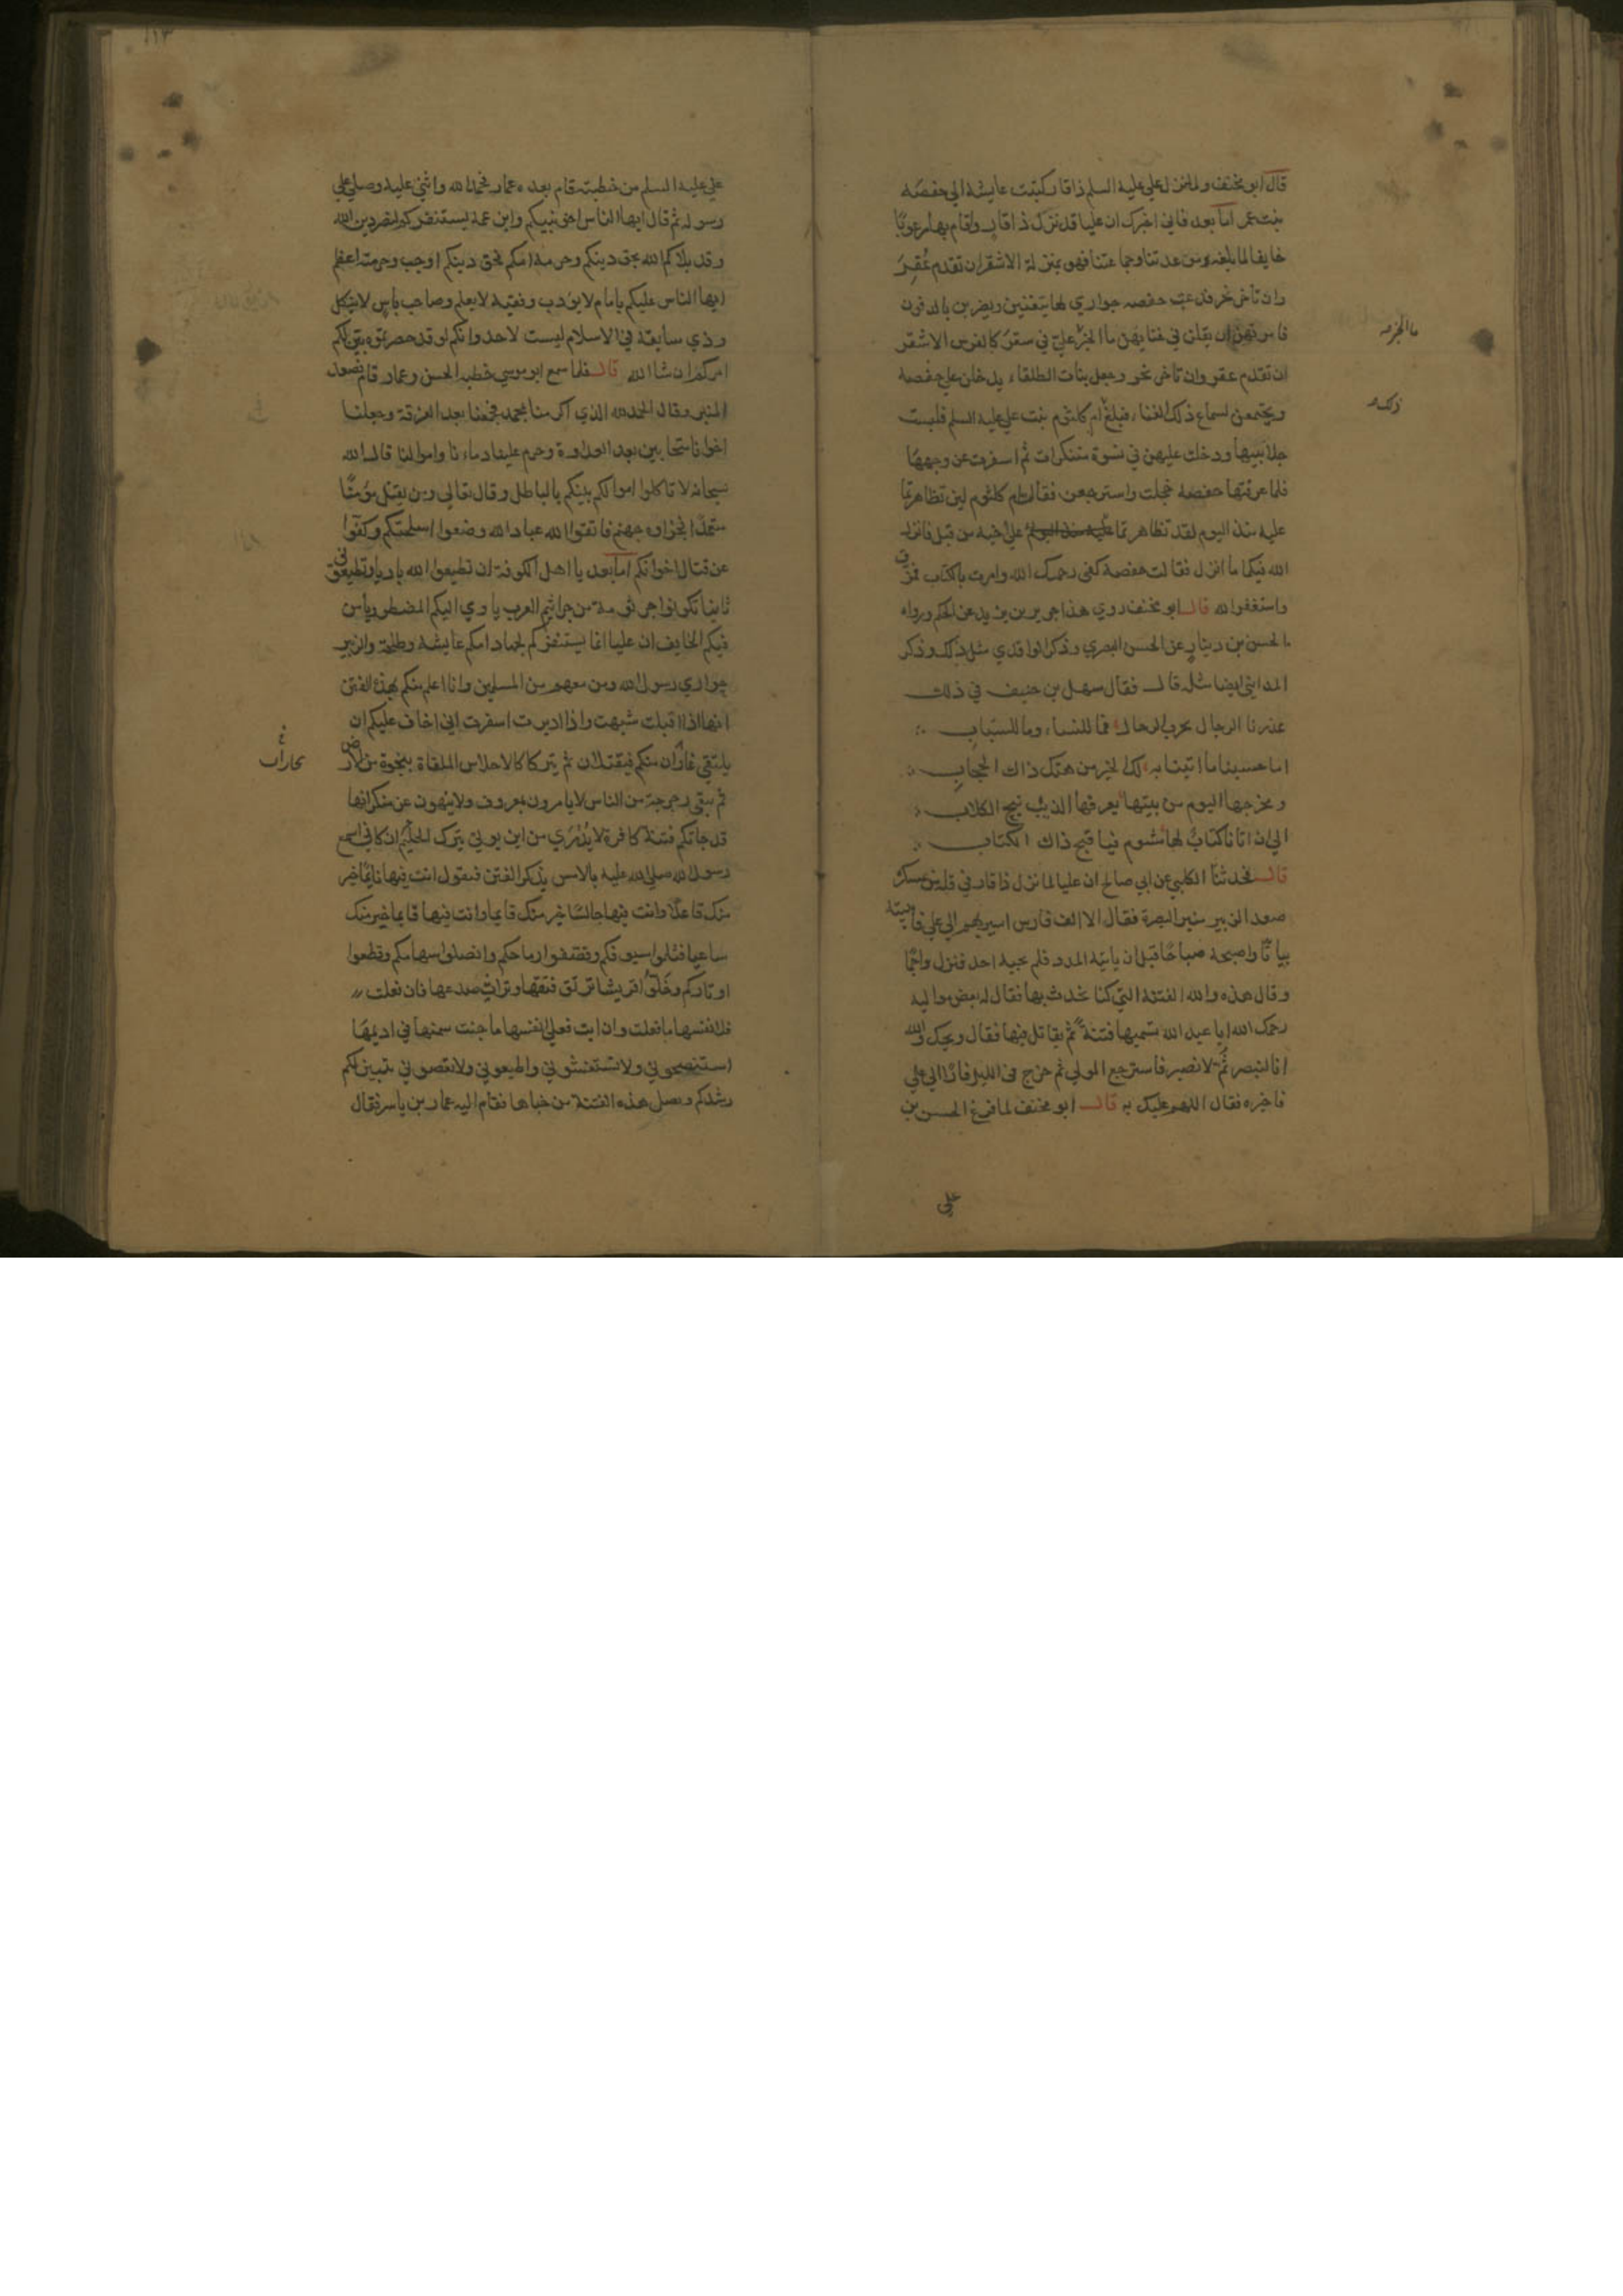 قال ابو مخنف ولما نزل علي عليه السلم ذا قار كتبت عايشة الي حفصه
بنت عمر اما بعد فاني اخبرك ان عليا قد نزل ذا قار واقام بها مرعوبًا
خايفا لما بلغه من عدتنا وجماعتنا فهو بمنزلة الاشقر ان تقدم عُقِرَ
وان تاخر نحر فدعت حفصه جواري لها يتغنين ويضربن بالدفوف
فامرتهن ان يقلن في غنايهن ما الخبر علي في سفر كالفرس الاشقر
ان تقدم عقر وان تاخر نحر وجعل بنات الطلقاء يدخلن علي حفصة
ويجتمعن لسماع ذلك الغناء فبلغ ام كلثوم بنت علي عليه السلم فلبست
جلابيبها ودخلت عليهن في نسوة متنكرات ثم اسفرت عن وجهها
فلما عرفتها حفصه خجلت واسترجعت فقالت ام كلثوم لين تظاهرتما
عليه منذ اليوم لقد تظاهرتما علي اخيه من قبل فانزل
الله فيكما ما انزل فقالت حفصة كفي رحمك الله وامرت بالكتاب فمزق
واستغفر الله قال ابو مخنف روي هذا جرير بن يزيد عن الحكم ورواه
الحسن بن دينار عن الحسن البصري وذكر الواقدي مثل ذلك وذكر
المدايني ايضا مثله قال فقال سهل بن حنيف في ذلك
عذرنا الرجال بحرب الرجال فما للنساء وما للسباب
اما حسبنا ما اتينا به لك الخير من هتك ذاك الحجاب
ومخرجها اليوم من بيتها يعرفها الذيب نبح الكلاب
الي ان اتانا كتاب لها مشوم فيا قبح ذاك الكتاب
قال فحدثنا الكلبي عن ابي صالح ان عليا لما نزل ذا قار في قلة من عسكر
صعد الزبير منبر البصرة فقال الا الف فارس اسير بهم الي علي فابيته
بياتًا واصبحه صباحًا قبل ان ياتيه المدد فلم يجبه احد فنزل واجمًا
وقال هذه والله الفتنة التي كنا نحدث بها فقال له بعض مواليه
رحمك الله ابا عبد الله تسميها فتنة ثم نقاتل فيها فقال ويحك والله
انا لنبصر ثم لا نصبر فاسترجع المولي ثم خرج في الليل فارًا الي علي
فاخبره فقال اللهم عليك به قال ابو مخنف لما فرغ الحسن بن
علي
علي عليه السلم من خطبته قام بعده عمار فحمد الله واثني عليه وصلي علي
رسوله ثم قال ايها الناس اخو نبيكم وابن عمه يستنفركم لنصر دين الله
وقد بلاكم الله بحق دينكم وحرمة امكم فحق دينكم اوجب وحرمته اعظم
ايها الناس عليكم بامام لا يودب وفقيه لا يعلم وصاحب باس لا ينكل
وذي سابقة في الاسلام ليست لاحد وانكم لو قد حضرتموه بين لكم
امركم ان شا الله قال فلما سمع ابو موسي خطبة الحسن وعمار قام فصعد
المنبر وقال الحمد لله الذي اكرمنا بمحمد فجمعنا بعد الفرقة وجعلنا
اخوانا متحابين بعد العداوة وحرم علينا دماءنا واموالنا قال الله
سبحانه لا تاكلوا اموالكم بينكم بالباطل وقال تعالي ومن يقتل مؤمنًا
متعمدًا فجزاوه جهنم فاتقوا الله عباد الله وضعوا اسلحتكم وكفوا
عن قتال اخوانكم اما بعد يا اهل الكوفة ان تطيعوا الله باديا وتطيعوني
ثانيا تكونوا جرثومة من جراثيم العرب ياوي اليكم المضطر ويامن
فيكم الخايف ان عليا انما يستنفركم لجهاد امكم عايشة وطلحة والزبير
حواري رسول الله ومن معهم من المسلمين وانا اعلم منكم بهذه الفتن
انها اذا اقبلت شبهت واذا ادبرت اسفرت اني اخاف عليكم ان
يلتقي غاران منكم فيقتتلان ثم يتركا كالاحلاس الملقاة بنجوة من الارض
ثم يبقي رجرجة من الناس لا يامرون بمعروف ولا ينهون عن منكر انها
قد جاتكم فتنة كافرة لا يُدْرَي من اين يوتي تترك الحليم ان كاني اسمع
رسول الله صلي الله عليه بالامس يذكر الفتن فيقول انت فيها نايمًا خير
منك قاعدًا وانت فيها جالسًا خير منك قايما وانت فيها قايما خير منك
ساعيا فثلموا سيوفكم وقصفوا رماحكم وانصلوا سهامكم وقطعوا
اوتاركم وخلوا قريشا ترتق فتقها وتراب صدعها فان فعلت
فلانفسها ما فعلت وان ابت فعلي انفسها ما جنت سمنها في اديمها
استنصحوني ولا تستغشوني واطيعوني ولا تعصوني يتبين لكم
رشدكم ويصلي هذه الفتنة من جناها فقام اليه عمار بن ياسر فقال